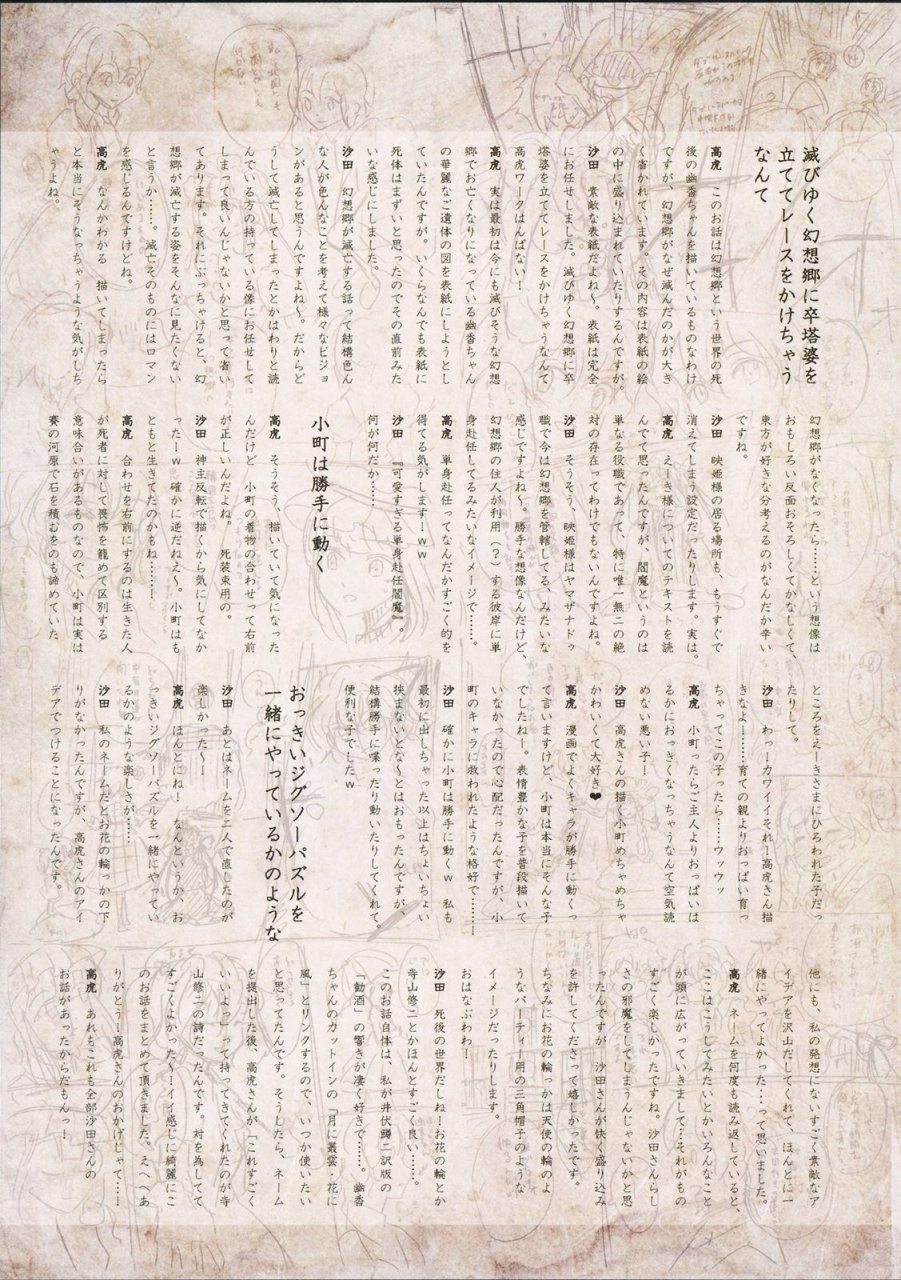 滅びゆく幻想郷に卒塔婆を
立ててレースをかけちゃう
なんて
高虎　このお話は幻想郷という世界の死
後の幽香ちゃんを描いているものなわけ
ですが、幻想郷がなぜ滅んだのかが大き
く省かれています。その内容は表紙の絵
の中に盛り込まれていたりするんですが。
沙田　素敵な表紙だよね～。表紙は完全
にお任せしました。滅びゆく幻想郷に卒
塔婆を立ててレースをかけちゃうなんて
高虎ワークはんぱない！
高虎　実は最初は今にも滅びそうな幻想
郷でお亡くなりになっている幽香ちゃん
の華麗なご遺体の図を表紙にしようとし
ていたんですが。いくらなんでも表紙に
死体はまずいと思ったのでその直前みた
いな感じにしました。
沙田　幻想郷が滅亡する話って結構色ん
な人が色んなことを考えて様々なビジョ
ンがあると思うんですよね～。だからど
うして滅亡してしまったとかはわりと読
んでいる方の持っている像にお任せして
しまって良いんじゃないかと思って省い
てあります。それにぶっちゃけると、幻
想郷が滅亡する姿をそんなに見たくない
と言うか……。滅亡そのものにはロマン
を感じるんですけどね。
高虎　なんかわかる　描いてしまったら
と本当にそうなっちゃうような気がしち
ゃうよね。
幻想郷がなくなったら……という想像は
おもしろい反面おそろしくてかなしくて、
東方が好きな分考えるのがなんだか辛い
ですね。
沙田　映姫様の居る場所も、もうすぐで
消えてしまう設定だったりします。実は。
高虎　えーき様についてのテキストを読
んでて思ったんですが、閻魔というのは
単なる役職であって、特に唯一無二の絶
対の存在ってわけでもないんですよね。
沙田　そうそう、映姫様はヤマザナドゥ
職で今は幻想郷を管轄してる、みたいな
感じですよね～。勝手な想像なんだけど、
幻想郷の住人が利用（？）する彼岸に単
身赴任してるみたいなイメージで……。
高虎　単身赴任ってなんだかすごく的を
得てる気がします！ｗｗ
沙田　『可愛すぎる単身赴任閻魔』。
何が何だか……
小町は勝手に動く
高虎　そうそう、描いていて気になった
んだけど　小町の着物の合わせって右前
が正しいんだよね。　死装束用の。
沙田　神主反転で描くから気にしてなか
った！ｗ　確かに逆だねえ～。小町はも
ともと生きてたのかもね………！
高虎　合わせを右前にするのは生きた人
が死者に対して畏怖を籠めて区別する
意味合いがあるものなので、小町は実は
賽の河原で石を積むをのも諦めていた
ところをえーきさまにひろわれた子だっ
たりして。
沙田　わっ！カワイイそれ！高虎さん描
きなよ！……育ての親よりおっぱい育っ
ちゃってこの子ったら……ウッウッ
高虎　小町ったらご主人よりおっぱいは
るかにおっきくなっちゃうなんて空気読
めない悪い子！
沙田　高虎さんの描く小町めちゃめちゃ
かわいくて大好き❤
高虎　漫画でよくキャラが勝手に動くっ
て言いますけど、小町は本当にそんな子
でしたねー。表情豊かな子を普段描いて
いなかったので心配だったんですが、小
町のキャラに救われたような格好で………
沙田　確かに小町は勝手に動くｗ　私も
最初に出しちゃった以上はちょいちょい
挟まないとな～とはおもったんですが、
結構勝手に喋ったり動いたりしてくれて。
便利な子でしたｗ
おっきいジグソーパズルを
一緒にやっているかのような
沙田　あとはネームを二人で直したのが
楽しかった～！
高虎　ほんとにね！　なんというか、お
っきいジグソーパズルを一緒にやってい
るかのような楽しさが……
沙田　私のネームだとお花の輪っかの下
りがなかったんですが、高虎さんのアイ
デアでつけることになったんです。
他にも、私の発想にないすごく素敵なア
イデアを沢山だしてくれて、ほんとに一
緒にやってよかった…って思いました。
高虎　ネームを何度も読み返していると、
ここはこうしてみたいとかいろんなこと
が頭に広がっていきまして…それがもの
すごく楽しかったですね。沙田さんらし
さの邪魔をしてしまうんじゃないかと思
ったんですが　沙田さんが快く盛り込み
を許してくださって嬉しかったです。
ちなみにお花の輪っかは天使の輪のよ
うなパーティー用の三角帽子のような
イメージだったりします。
おはなぶわわ！
沙田　死後の世界だしね！お花の輪とか
寺山修二とかほんとすごく良い……。
このお話自体は、私が井伏鱒二訳版の
「勧酒」の響きが凄く好きで……。幽香
ちゃんのカットインの『月に叢雲・花に
風』とリンクするので、いつか使いたい
と思ってたんです。そうしたら、ネーム
を提出した後、高虎さんが「これすごく
いいよっ」って持ってきてくれたのが寺
山修二の詩だったんです。対を為してて
すごくよかった～！イイ感じに綺麗にこ
のお話をまとめて頂きました。えへへあ
りがとう！高虎さんのおかげじゃて……
高虎　あれもこれも全部沙田さんの
お話があったからだもんっ！